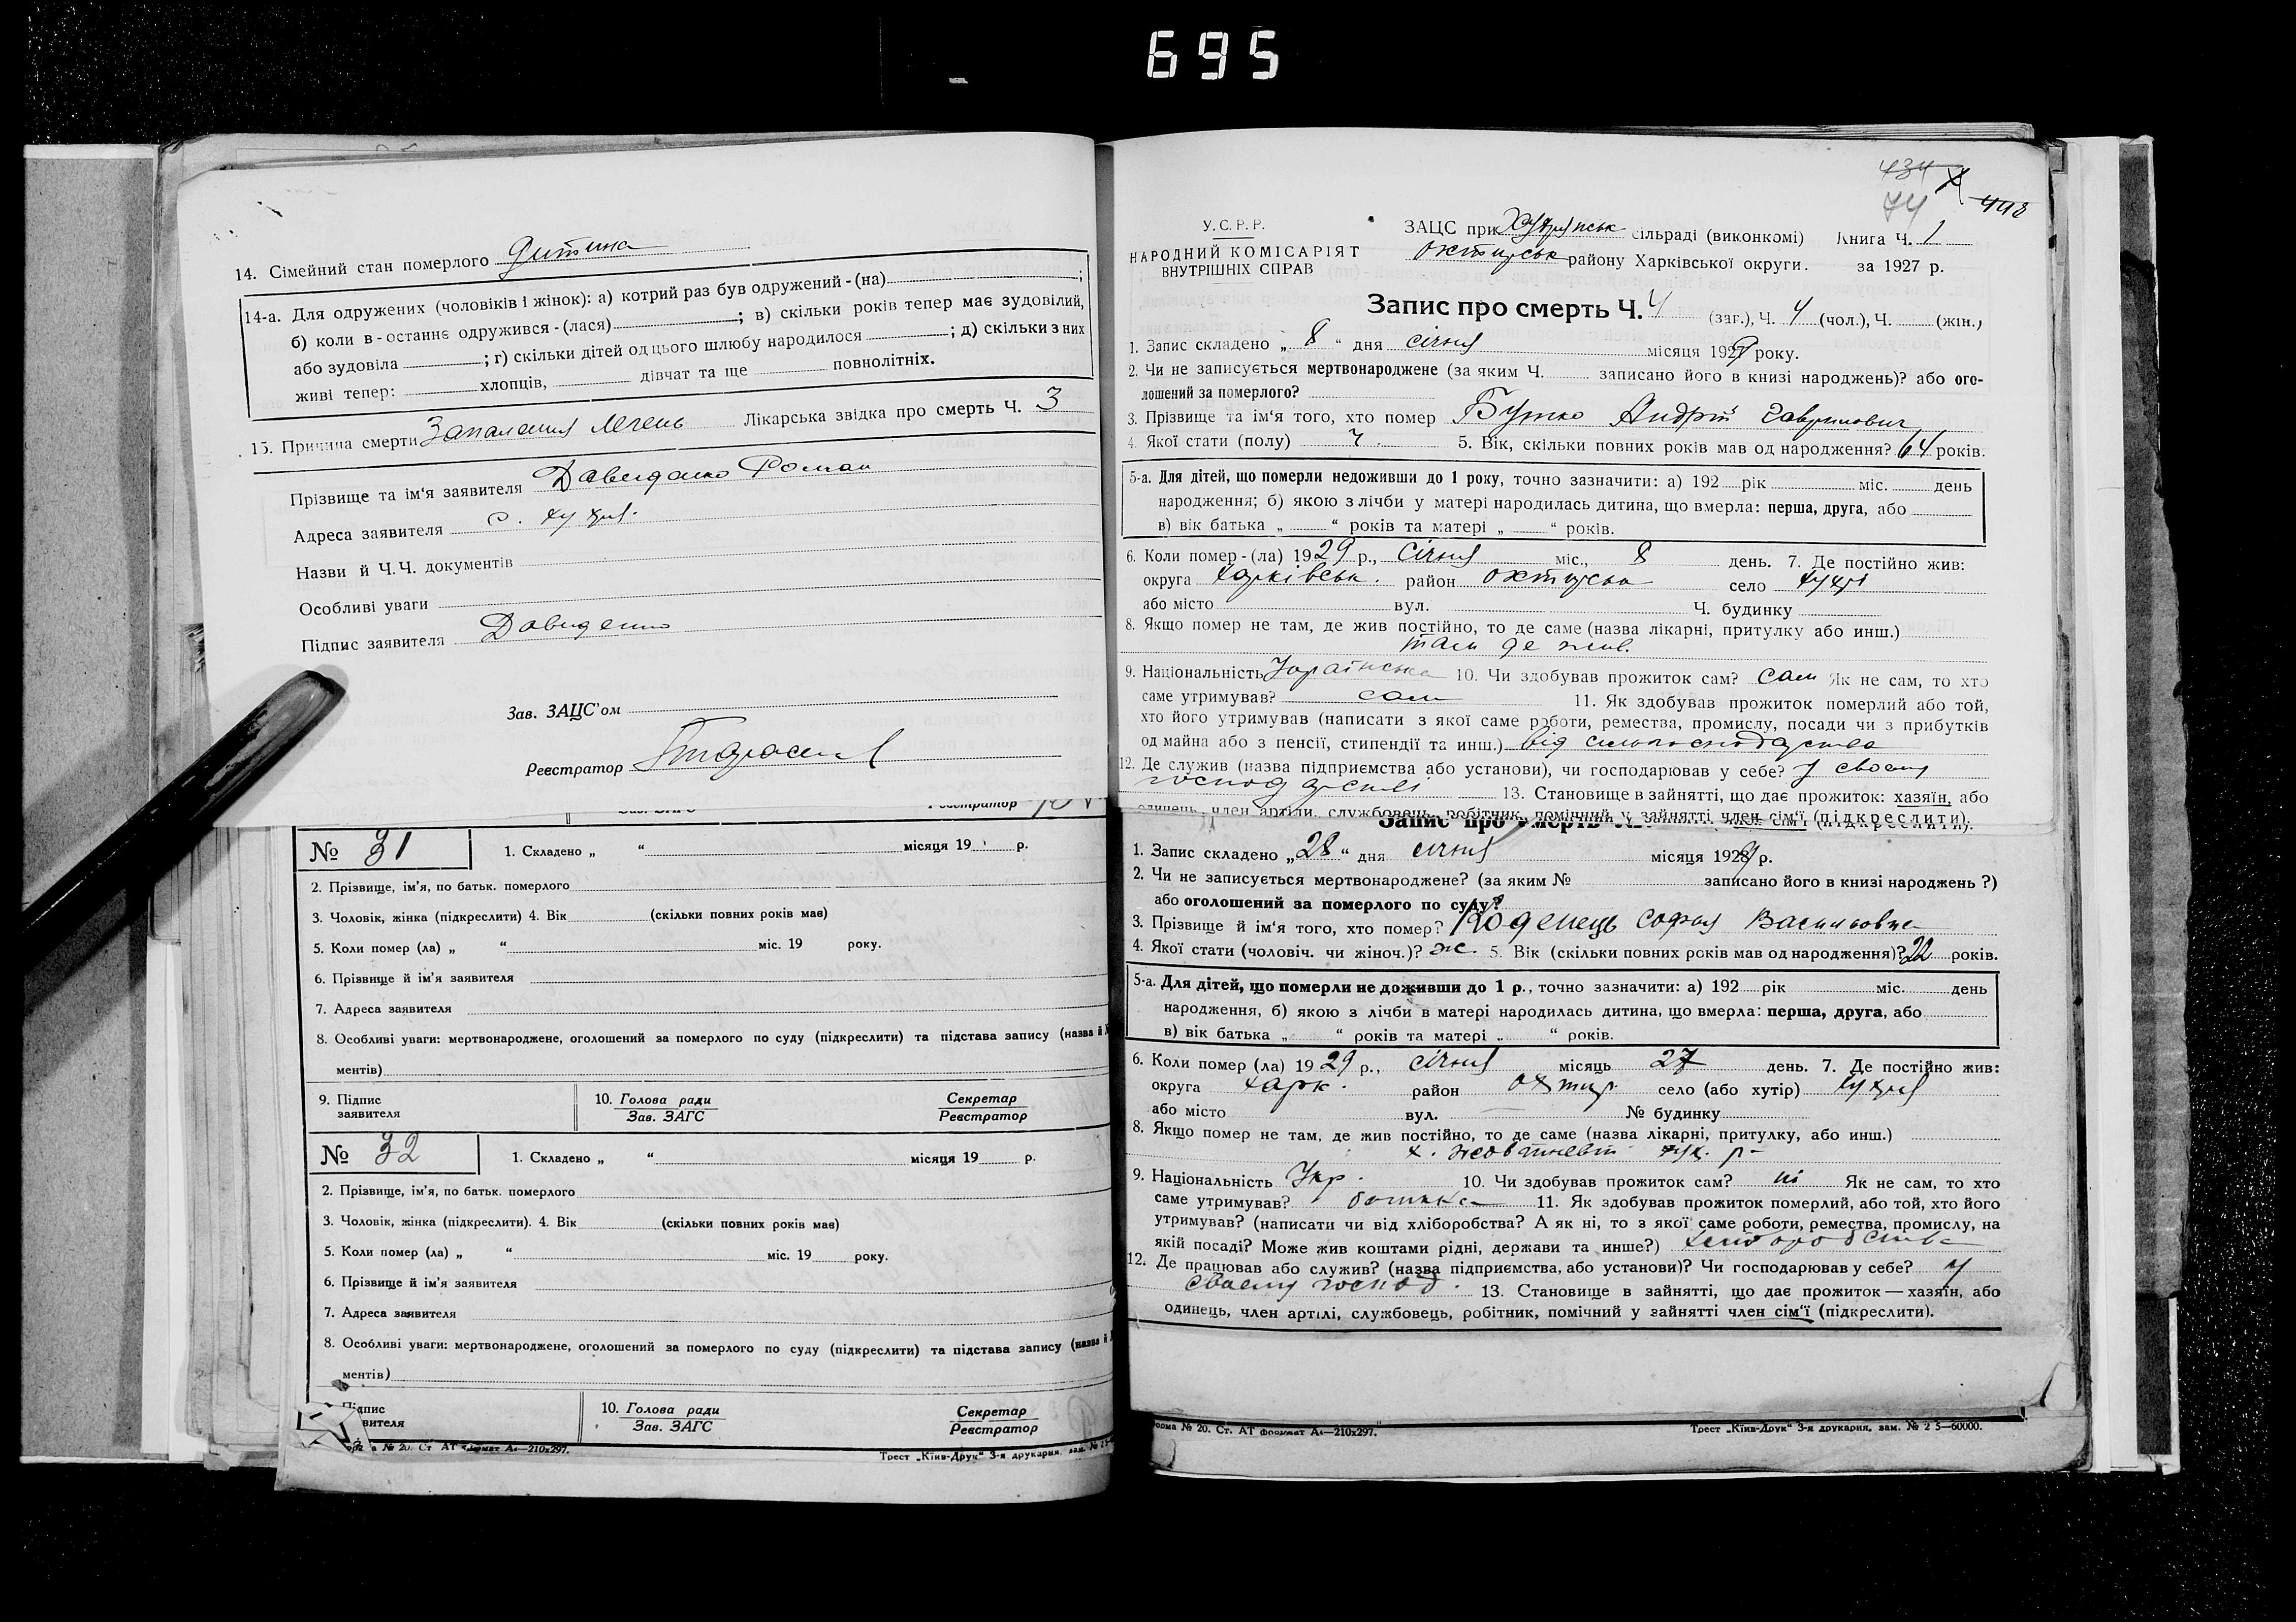 695
14. Сімейний стан померлого Дитина
14-а. Для одружених (чоловіків і жінок): а) котрий раз був одружений - (на) ;
б) коли в - останнє одружився - (лася) ; в) скільки років тепер має зудовілий,
або зудовіла ; г) скільки дітей од цього шлюбу народилося ; д) скільки з них
живі тепер: хлопців, дівчат та ще повнолітніх.
15. Причина смерти Запалення Лечень Лікарська звідка про смерть Ч. 3
Прізвище та ім'я заявителя Давиденко Роман
Адреса заявителя с.
Назви й Ч.Ч. документів
Особливі уваги
Підпис заявителя Давиденко
Зав. ЗАЦС'ом
Реєстратор
Реєстратор
№ 31 1. Складено „ “ місяця 19 р.
2. Прізвище, ім'я, по батьк. померлого
3. Чоловік, жінка (підкреслити) 4. Вік (скільки повних років має)
5. Коли помер (ла) „ “ міс. 19 року.
6. Прізвище й ім'я заявителя
7. Адреса заявителя
8. Особливі уваги: мертвонароджене, оголошений за померлого по суду (підкреслити) та підстава запису (назва й
ментів)
9. Підпис заявителя 10. Голова ради Секретар
Зав. ЗАГС Реєстратор
№ 32 1. Складено „ “ місяця 19 р.
2. Прізвище, ім'я, по батьк. померлого
3. Чоловік, жінка (підкреслити). 4. Вік (скільки повних років має)
5. Коли помер (ла) „ “ міс. 19 року.
6. Прізвище й ім'я заявителя
7. Адреса заявителя
8. Особливі уваги: мертвонароджене, оголошений за померлого по суду (підкреслити) та підстава запису (назва й
ментів)
10. Голова ради Секретар
Зав. ЗАГС Реєстратор
№ 20. Ст. АТ формат А4—210x297. Трест „Київ-Друк“ 3-я друкарня, зам.
434 74 448
У.С.Р.Р.
НАРОДНИЙ КОМІСАРІЯТ
ВНУТРІШНІХ СПРАВ
ЗАЦС при сільраді (виконкомі) Книга Ч. 1
Охтирськ району Харківської округи. за 1927 р.
Запис про смерть Ч. 4 (заг.), Ч. 4 (чол.), Ч. (жін.)
1. Запис складено „ 8 “ дня січня місяця 1929 року.
2. Чи не записується мертвонароджене (за яким Ч. записано його в книзі народжень)? або ого-
лошений за померлого?
3. Прізвище та ім'я того, хто помер Бутко Андрій Гаврилович
4. Якої стати (полу) ч. 5. Вік, скільки повних років мав од народження? 64 років.
5-а. Для дітей, що померли недоживши до 1 року, точно зазначити: а) 192 рік міс. день
народження; б) якою з лічби у матері народилась дитина, що вмерла: перша, друга, або
в) вік батька „ “ років та матері „ “ років.
6. Коли помер - (ла) 1929 р., січня міс., 8 день. 7. Де постійно жив:
округа Харківськ. район Охтирськ село
або місто вул. Ч. будинку
8. Якщо помер не там, де жив постійно, то де саме (назва лікарні, притулку або инш.)
там де жив.
9. Національність Українська 10. Чи здобував прожиток сам? сам Як не сам, то хто
саме утримував? сам 11. Як здобував прожиток померлий або той,
хто його утримував (написати з якої саме роботи, ремества, промислу, посади чи з прибутків
од майна або з пенсії, стипендії та инш.) від сільгосподарства
12. Де служив (назва підприємства або установи), чи господарював у себе? у своему
господарстві 13. Становище в зайнятті, що дає прожиток: хазяїн, або
одинець, член артіли, службовець, робітник, помічний у зайнятті член сім'ї (підкреслити).
Запис про смерть
1. Запис складено „28“ дня січня місяця 1929 р.
2. Чи не записується мертвонароджене? (за яким № записано його в книзі народжень ?)
або оголошений за померлого по суду?
3. Прізвище й ім'я того, хто помер? Коденець Софья Васильовна
4. Якої стати (чоловіч. чи жіноч.)? ж 5. Вік (скільки повних років мав од народження)? 22 років.
5-а. Для дітей, що померли не доживши до 1 р., точно зазначити: а) 192 рік міс. день
народження, б) якою з лічби в матері народилась дитина, що вмерла: перша, друга, або
в) вік батька „ “ років та матері „ “ років.
6. Коли помер (ла) 1929 р., січня місяць 27 день. 7. Де постійно жив:
округа Харк. район Охтир. село (або хутір)
або місто вул. № будинку
8. Якщо помер не там, де жив постійно, то де саме (назва лікарні, притулку, або инш.)
х.
9. Національність Укр. 10. Чи здобував прожиток сам? ні Як не сам, то хто
саме утримував? батька 11. Як здобував прожиток померлий, або той, хто його
утримував? (написати чи від хліборобства? А як ні, то з якої саме роботи, ремества, промислу, на
якій посаді? Може жив коштами рідні, держави та инше?) хліборобства
12. Де працював або служив? (назва підприємства, або установи)? Чи господарював у себе? у
своему господ. 13. Становище в зайнятті, що дає прожиток — хазяїн, або
одинець, член артілі, службовець, робітник, помічний у зайнятті член сім'ї (підкреслити).
форма № 20. Ст. АТ формат А4—210x297. Трест „Київ-Друк“ 3-я друкарня, зам. № 2 5—60000.